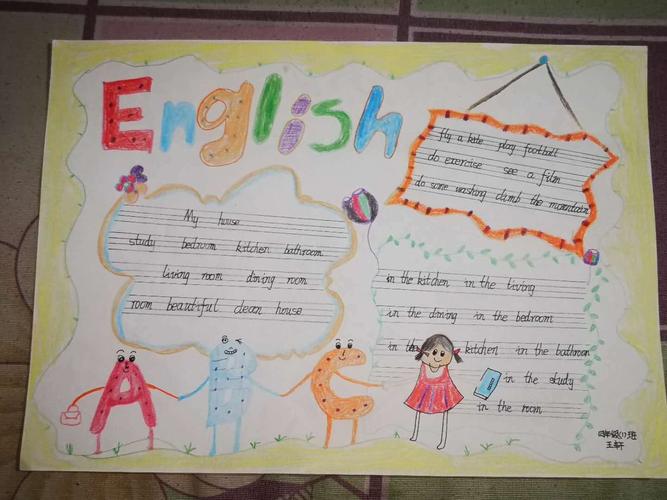 English
fly a kite play football
do exercise see a film
do some washing climb the mountain
My house
study bedroom kitchen bathroom
living room dining room
room beautiful clean house
in the kitchen in the living
in the dining in the bedroom
in the kitchen in the bathroom
in the study
in the room
A B C
四年级(1)班
王轩